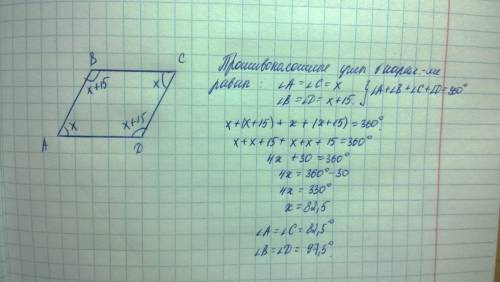 B
C
x+15
x
x
x+15
A
D
Противоположные углы в парал-ме
равны: ∠A=∠C=x
∠B=∠D=x+15
} ∠A+∠B+∠C+∠D=360°
x+(x+15)+x+(x+15)=360°
x+x+15+x+x+15=360°
4x+30=360°
4x=360°-30
4x=330°
x=82,5
∠A=∠C=82,5°
∠B=∠D=97,5°